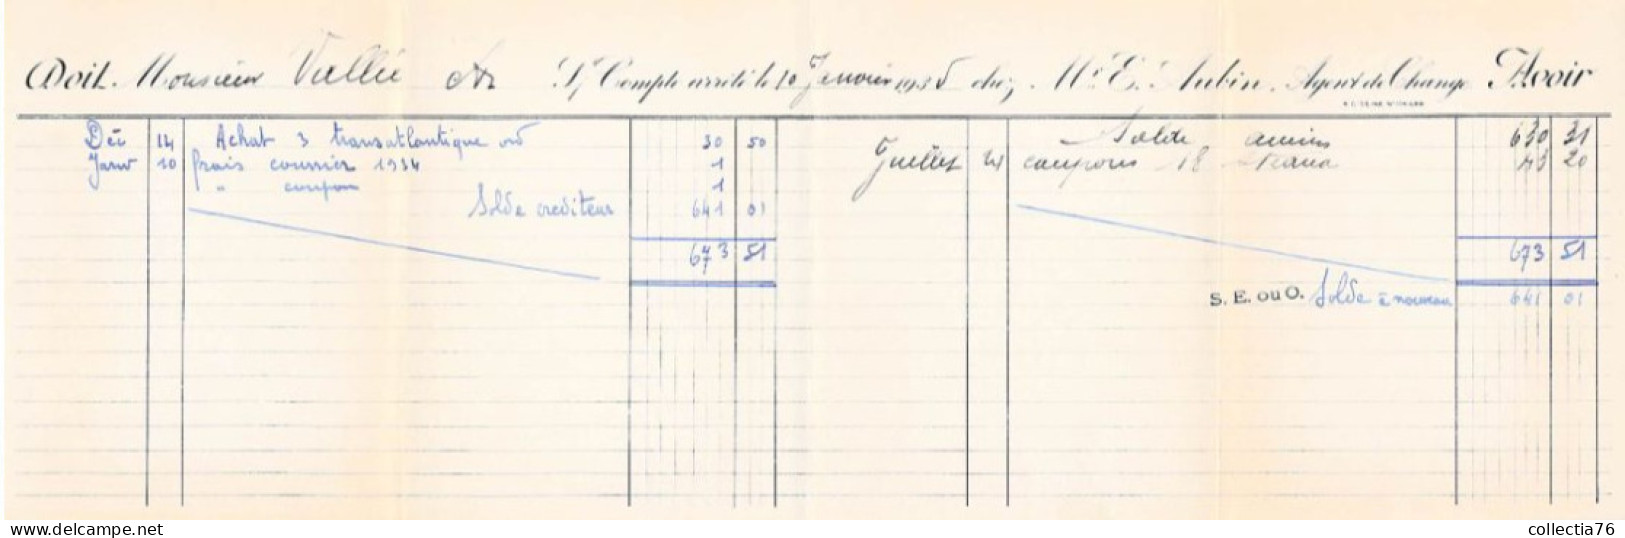 Doit Monsieur Vallée S/ Compte arrêté le 10 Janvier 1935 chez Mr E. Aubin, Agent de Change Avoir
Déc 14 Achat 3 transatlantique ord 30 50 Solde ancien 630 31
Janv 10 frais courrier 1934 1 Juillet 21 coupons 18 43 20
" coupon 1
Solde créditeur 641 01
673 51 673 51
S. E. ou O. Solde à nouveau 641 01
www.delcampe.net collectia76